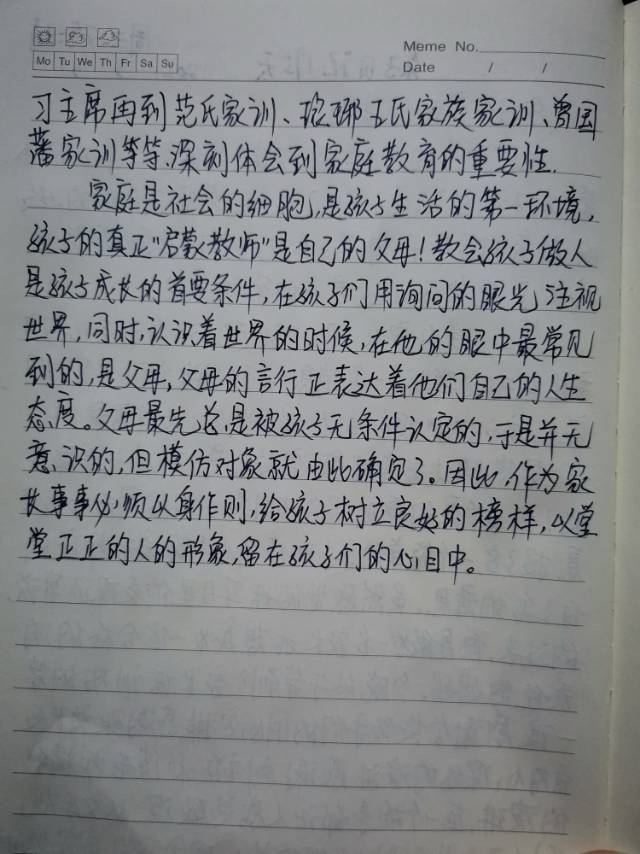 Meme No.
Mo Tu We Th Fr Sa Su
Date / /
习主席再到范氏家训、琅琊王氏家族家训、曾国
藩家训等等,深刻体会到家庭教育的重要性.
家庭是社会的细胞,是孩子生活的第一环境,
孩子的真正"启蒙教师"是自己的父母!教会孩子做人
是孩子成长的首要条件,在孩子们用询问的眼光注视
世界,同时,认识着世界的时候,在他的眼中最常见
到的,是父母,父母的言行正表达着他们自己的人生
态度。父母最先总是被孩子无条件认定的,于是并无
意识的,但模仿对象就由此确定了。因此,作为家
长事事必须以身作则,给孩子树立良好的榜样,以堂
堂正正的人的形象,留在孩子们的心目中。